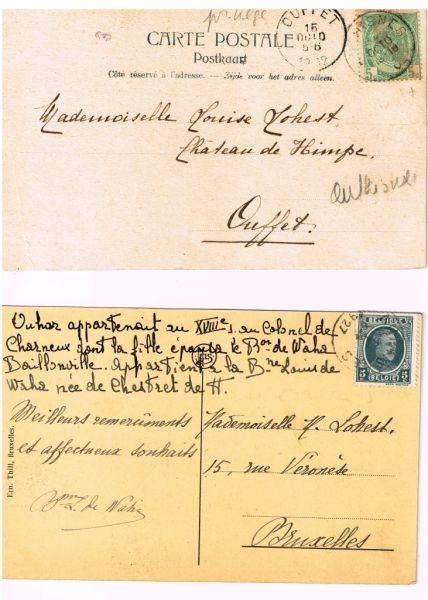 pr Liège
CARTE POSTALE
Postkaart
Côté réservé à l'adresse. — Zijde voor het adres alleen.
OUFFET
15
OCTO
5-6
5
Mademoiselle Louise Lohest
Château de Himpe.
Ouffet.
Ouhar appartenait au XVIIIe s. au Colonel de
Charneux dont la fille épousa le Bon de Waha
Baillonville. Appartient à la Bne Louis de
Waha née de Chestret de H.
BELGIQUE
5 5
BELGIE
Meilleurs remerciments
et affectueux souhaits
Bnne L de Waha
Ern. Thill, Bruxelles.
Mademoiselle M. Lohest.
15, rue Véronèse
Bruxelles